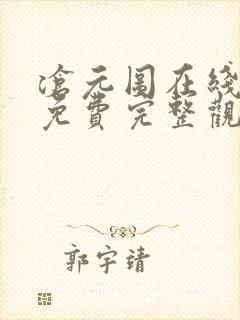 滄元圖在綫
免費完整觀
郭宇靖